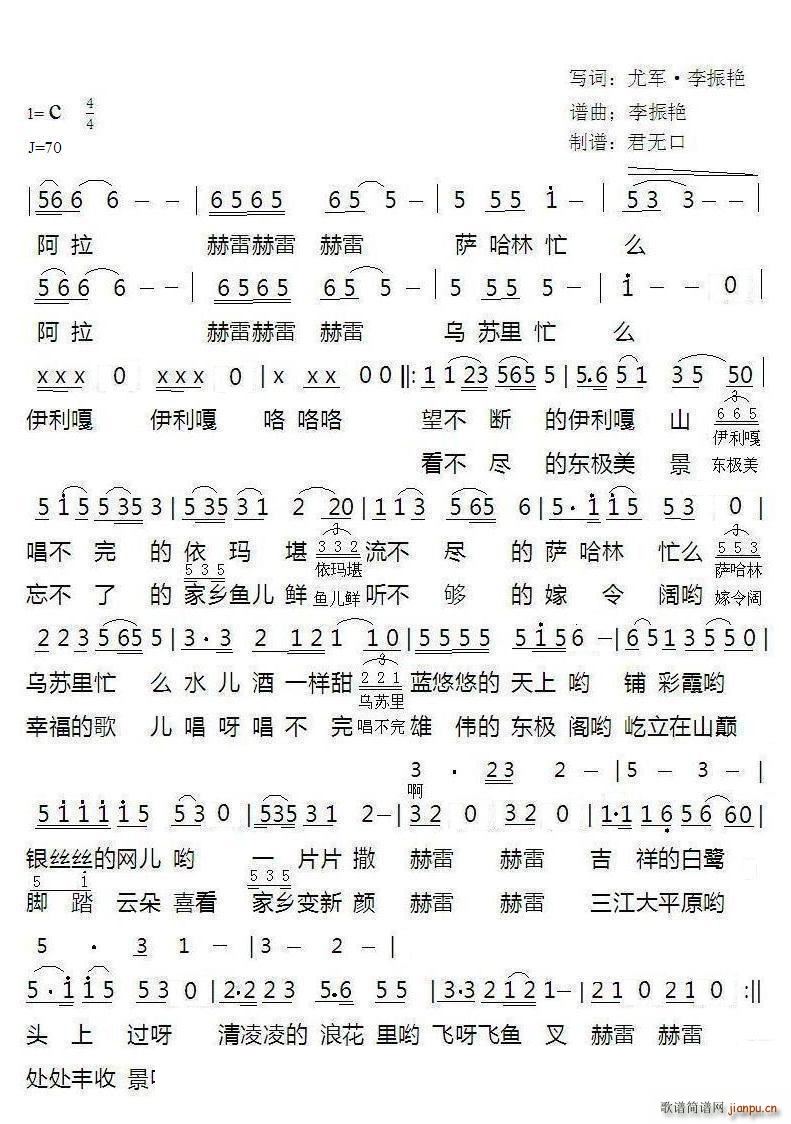 写词：尤军·李振艳
1=C 4/4
谱曲；李振艳
J=70
制谱：君无口
|566 6 – – | 6565 65 5 – | 5 55 i – | 53 3 – – |
阿拉 赫雷赫雷 赫雷 萨哈林忙 么
566 6 – – | 6565 65 5 – | 5 55 5 – | i – – 0 |
阿拉 赫雷赫雷 赫雷 乌苏里忙 么
xxx 0 xxx 0 | x xx 00 ‖: 11235655 | 5.651 35 50 |
伊利嘎 伊利嘎 咯 咯咯 望不 断 的伊利嘎 山 665 伊利嘎
看不 尽 的东极美 景 东极美
5i55353 | 53531 2 20 | 113 565 6 | 5·ii5 53 0 |
唱不 完 的 依 玛 堪 332 流不 尽 的 萨哈林 忙么 553
535 依玛堪 萨哈林
忘不 了 的 家乡鱼儿 鲜 鱼儿鲜 听不 够 的 嫁 令 阔哟 嫁令阔
2235655 | 3·3 2 112 1 10 | 5555 5i56 – | 65135550 |
乌苏里忙 么 水 儿 酒 一样甜 221 蓝悠悠的 天上 哟 铺 彩霞哟
乌苏里
幸福的歌 儿 唱 呀 唱 不 完 唱不完 雄 伟的 东极 阁哟 屹立在山巅
3 · 23 2 – | 5 – 3 – |
啊
5iiii5 530 | 53531 2– | 320 320 | 1·11656 60 |
银丝丝的网儿 哟 一 片片 撒 赫雷 赫雷 吉 祥的白鹭
5 i 535
脚 踏 云朵 喜看 家乡变新 颜 赫雷 赫雷 三江大平原哟
5 · 3 1 – | 3 – 2 – |
5·ii5 530 | 2·223 5.6 55 | 3·3 2121 – | 210 210 :‖
头 上 过呀 清凌凌的 浪花 里哟 飞呀飞鱼 叉 赫雷 赫雷
处处丰收 景
歌谱简谱网 jianpu.cn